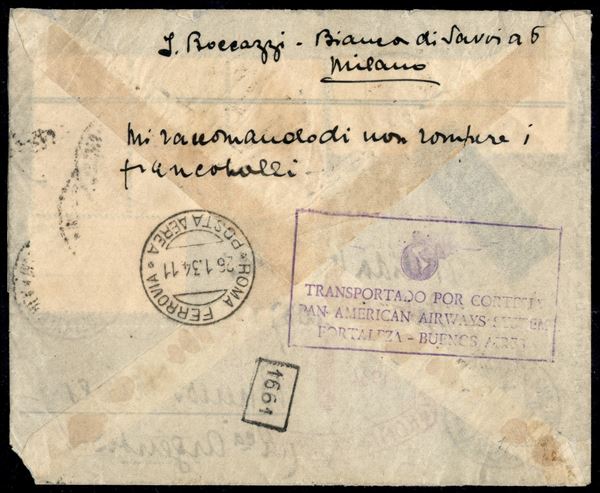 J. Boccazzi - Bianca di Savoia 6
Milano
Mi raccomando di non rompere i
francobolli
ROMA FERROVIA * POSTA AEREA *
26.1.34.11
TRANSPORTADO POR CORTESIA
PAN AMERICAN AIRWAYS SYSTEM
FORTALEZA - BUENOS AIRES
1661